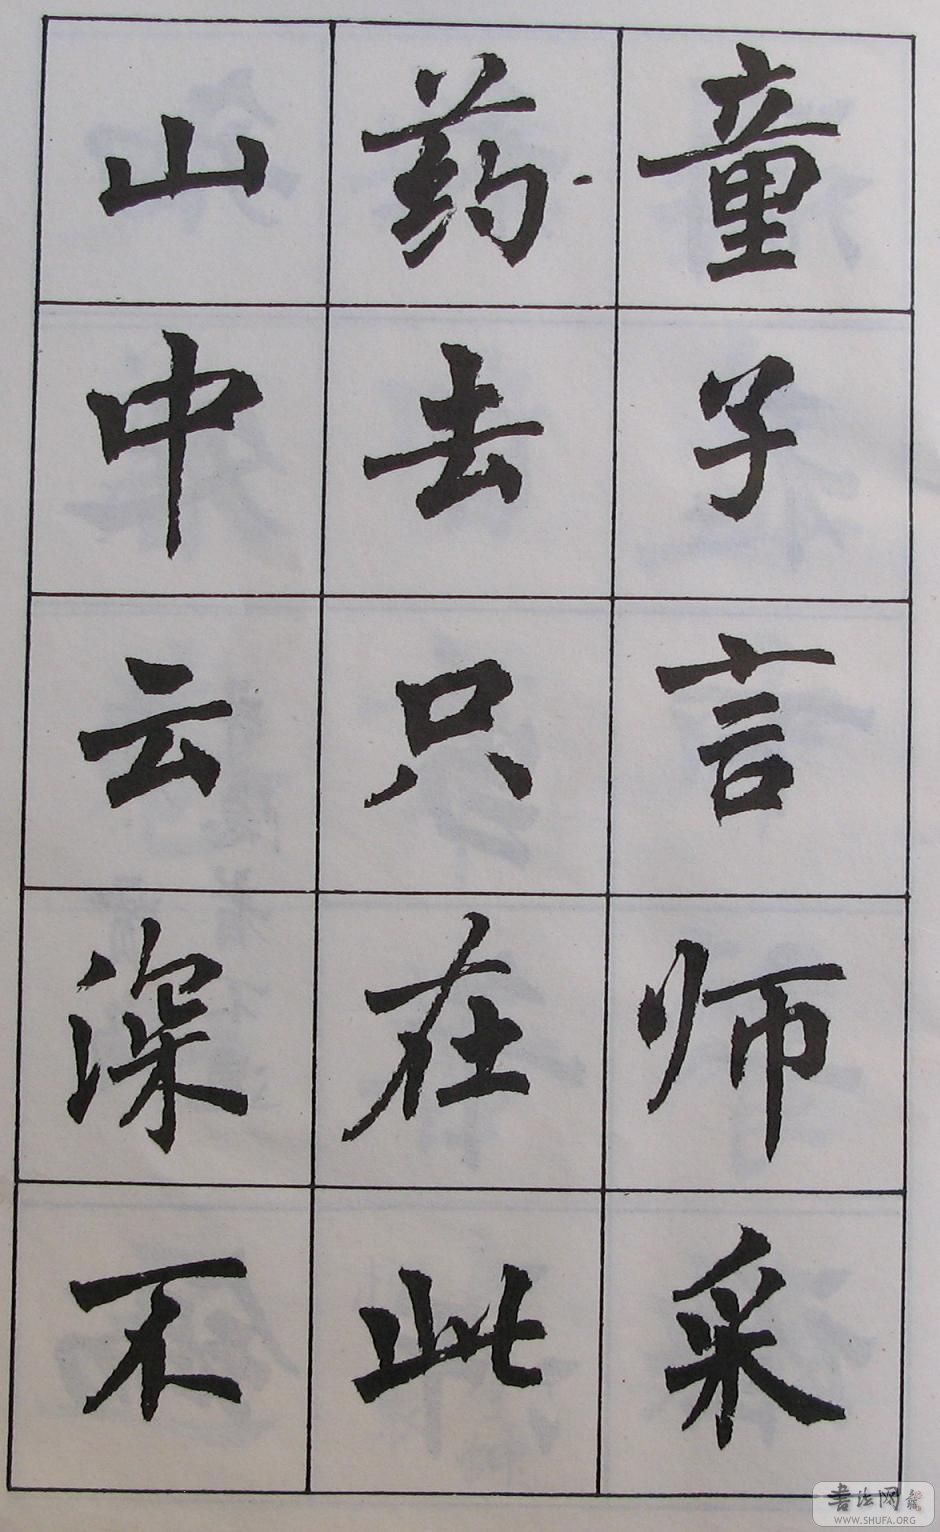 童子言师采
药去只在此
山中云深不
书法网
WWW.SHUFA.ORG